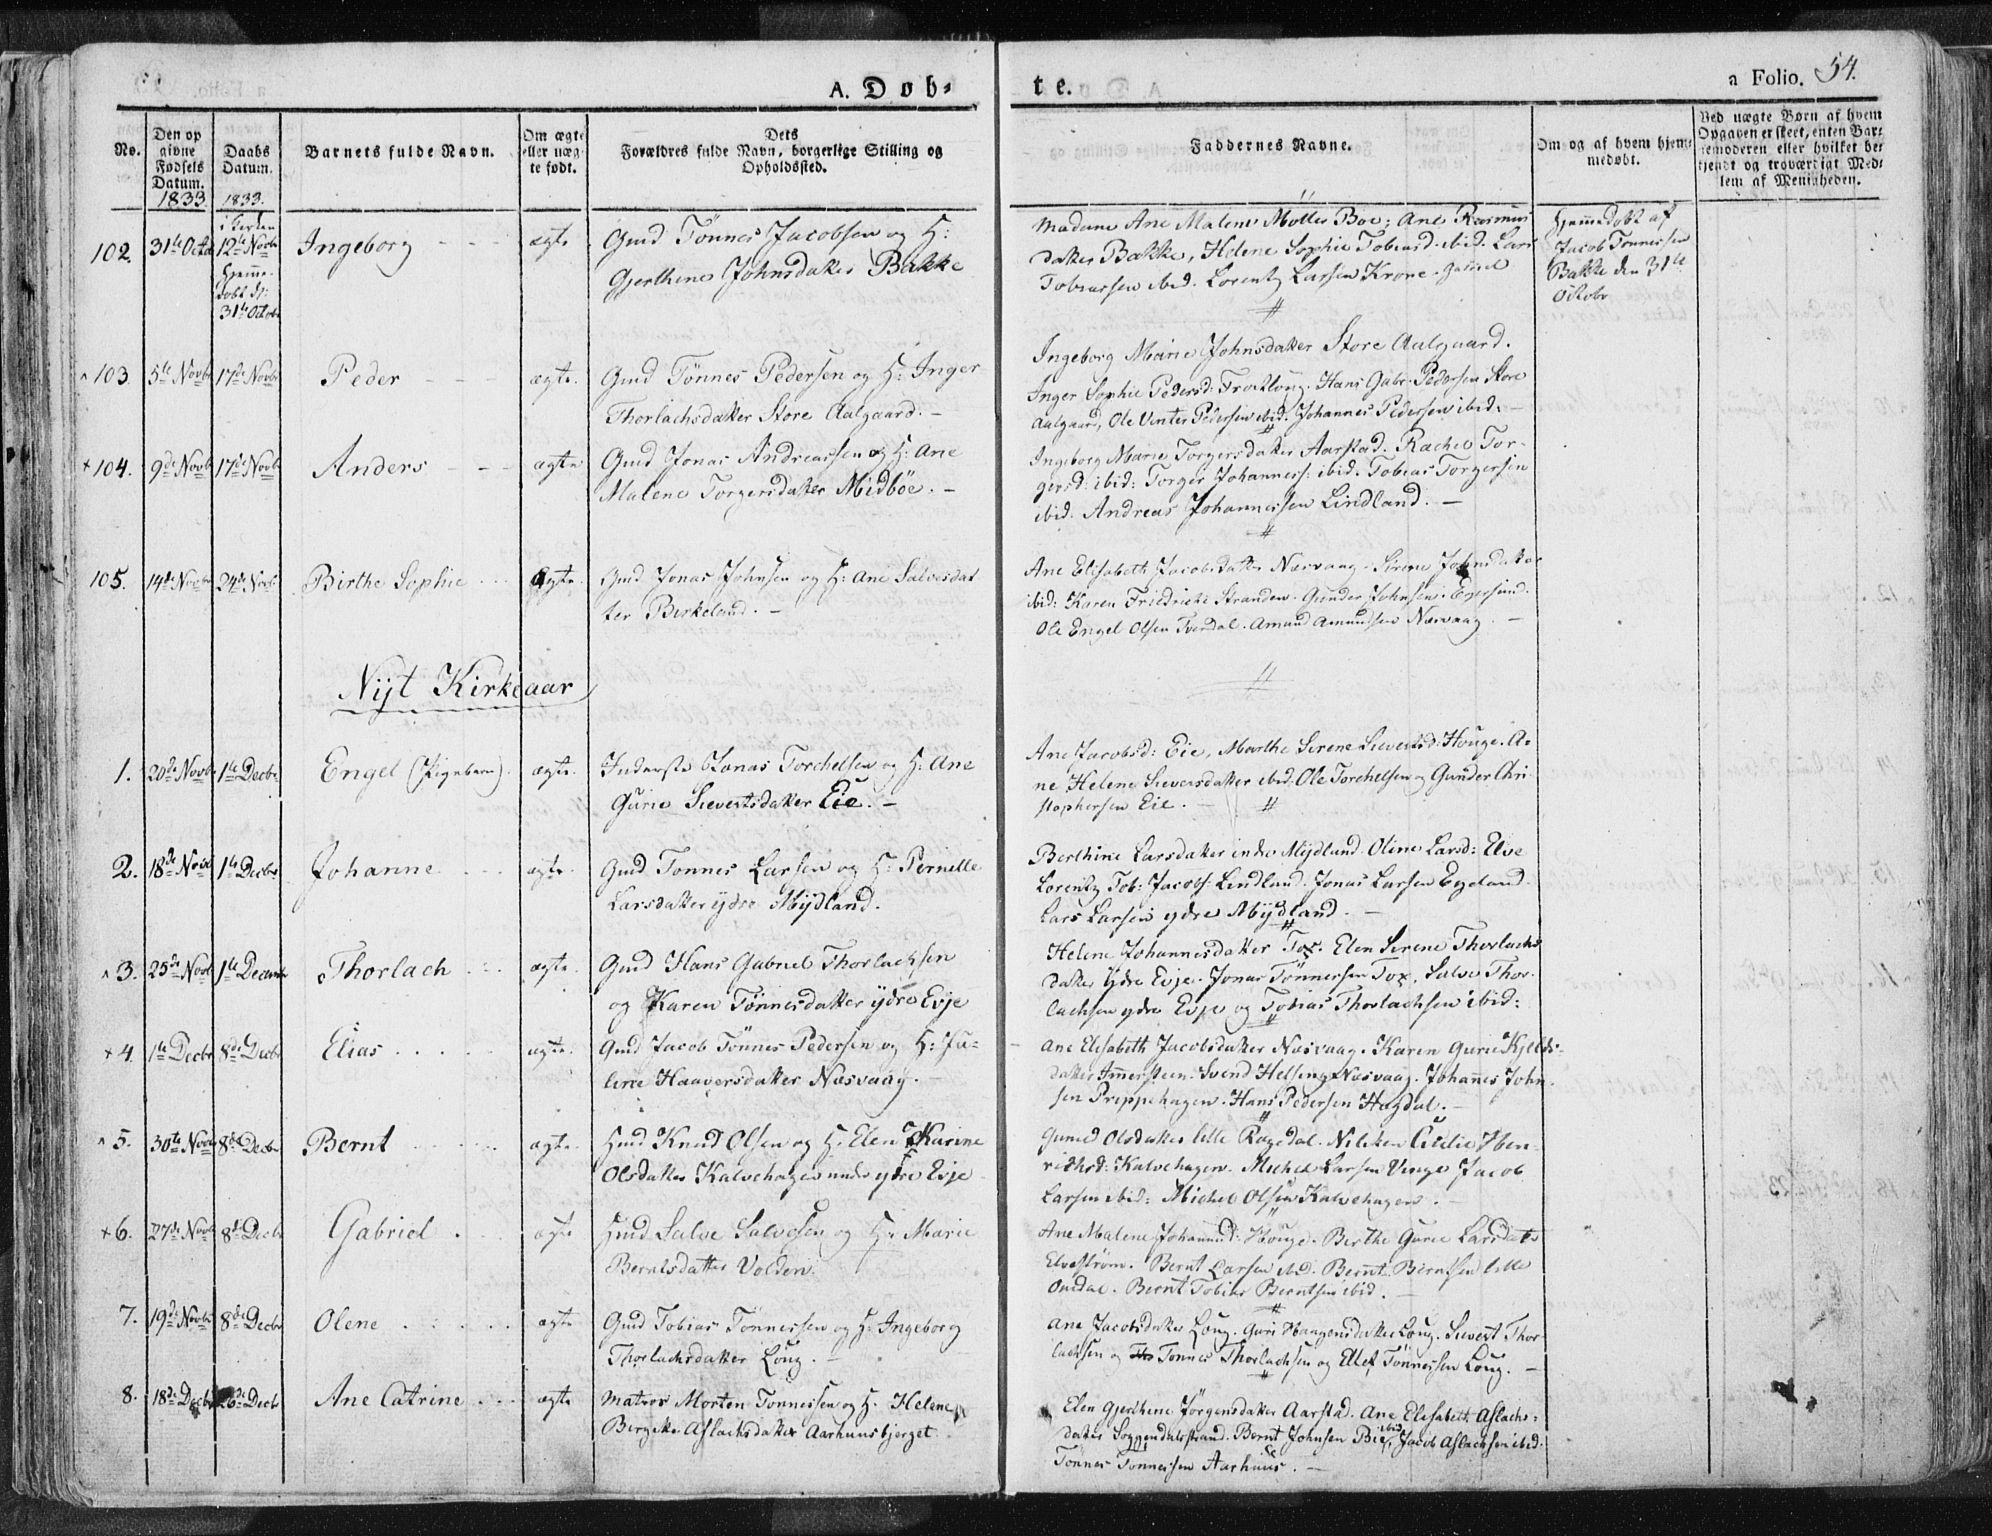 A. Døb-
te.
a Folio. 54.
No.
Den op
givne
Fødsels
Datum.
1833
Daabs
Datum.
1833.
Barnets fulde Navn.
Om ægte
eller uæg-
te født.
Dets
Forældres fulde Navn, borgerlige Stilling og
Opholdssted.
Faddernes Navne.
Om og af hvem hjem-
medøbt.
Ved uægte Børn af hvem
Opgaven er skeet, enten Bar-
nemoderen eller hvilket be-
kjendt og troværdigt Med-
lem af Menigheden.
102. 31te Octb
i Kirken
12te Novbr
Hjemme-
døbt d:
31te Octobr
Ingeborg
ægte
Gmd Tönnes Jacobsen og H:
Gjerthine Johnsdatter Bakke
Madame Ane Malene Möller Boe; Ane Rasmus
datter Bakke, Helene Sophie Tobiasd. ibid. Lars
Tobiassen ibid. Lorentz Larsen Krone
Hjemmedöbt af
Jacob Tönnessen
Bakke den 31te
Octobr
103. 5te Novbr 17de Novbr Peder ægte.
Gmd Tönnes Pedersen og H: Inger
Thorlachsdatter Store Aalgaard. -
Ingeborg Marie Johnsdatter Store Aalgaard.
Inger Sophie Pedersd: Hans Gabr. Pedersen Store
Aalgaard, Ole Vinter Pedersen ibid. Johannes Pedersen ibid:
+ 104. 9de Novb 17de Novb Anders ægte
Gmd Jonas Andreassen og H: Ane
Malene Torgersdatter Midböe. -
Ingeborg Marie Torgersdatter Aarstad. Rachel Tor-
gersd: ibid: Torger Johanness: ibid. Tobias Torgersen
ibid. Andreas Johannessen Lindland. -
105. 14de Novbr 24de Novbr Birthe Sophie ægte.
Gmd Jonas Johnsen og H: Ane Salvesdat
ter Birkeland. -
Ane Elisabeth Jacobsdatter Næsvaag. Sirene Johnsdatter
ibid: Karen Friedriche Stranden. Gunder Johnsen. Egersund.
Ole Engel Olsen Tverdal. Amund Amundsen Næsvaag. -
Nijt Kirkeaar
1. 20de Novbr 1te Decbr Engel (Pigebarn). ægte.
Inderste Jonas Torchelsen og H: Ane
Gurie Sievertsdatter Eie. -
Ane Jacobsd: Eie, Marthe Serene Sievertsd: Houge. A-
ne Helene Sieversdatter ibid: Ole Torchelsen og Gunder Chri-
stophersen Eie. -
2. 18de Novbr 1te Decbr Johanne ægte.
Gmd Tönnes Larsen og H: Pernille
Larsdatter ydre Mydland.
Berthine Larsdatter indre Mydland. Oline Larsd: Elve
Lorentz Tob: Jacobs: Lindland. Jonas Larsen Egeland.
Lars Larsen ydre Mydland. -
3. 25de Novb 1te Decembr Thorlach ægte.
Gmd Hans Gabriel Thorlachsen
og Karen Tönnesdatter ydre Evje
Helene Johannesdatter Tox. Elen Serene Thorlachs
datter ydre Evje. Jonas Tönnessen Tox, Salve Thor-
lachsen ydre Evje og Tobias Thorlachsen ibid:
+ 4. 1te Decbr 8de Decbr Elias ægte.
Gmd Jacob Tönnes Pedersen og H: Ju-
line Haaversdatter Næsvaag.
Ane Elisabeth Jacobsdatter Næsvaag. Karen Gurie Kjelds-
datter Immersteen. Svend Helsing Næsvaag. Johannes John-
sen Prippehagen. Hans Pedersen Hagdal. -
5. 30te Novbr 8de Decbr Bernt ægte.
Hmd Knud Olsen og H. Elen Karine
Olsdatter Kalvehagen under ydre Evje
Gunild Olsdatter lille Rægedal. Nilken Cicilie Hen-
richsd: Kalvehagen. Michel Larsen Jacob
Larsen ibid: Michel Olsen Kalvehagen. -
+ 6. 27de Novbr 8de Decbr Gabriel ægte
Hmd Salve Salvesen og H: Marie
Berntsdatter Volden.
Ane Malene Johannesd: Houge. Berthe Gurie Larsdatr
Elveström. Bernt Larsen ibid: Bernt Berntsen lille
Omdal. Bernt Tobias Berntsen ibid. -
7. 19de Novbr 8de Decbr Olene ægte
Gmd Tobias Tönnessen og H: Ingeborg
Thorlachsdatter Loug. -
Ane Jacobsdatter Loug. Guri Haagensdatter Loug. Sievert Thor-
lachsen og Tönnes Thorlachsen og Ellef Tönnessen Loug. -
8. 18de Decbr 26de Decbr Ane Catrine ægte
Matros Morten Tönnessen og H. Helene
Bergitte Aslachsdatter Aarhuusbjerget
Elen Gjerthine Jörgensdatter Aarstad. Ane Elisabeth Aslachs-
datter Soggendalsstrand. Bernt Johnsen Bie, Jacob Aslachsen ibid.
Tönnes Tönnessen Aarhuus. -